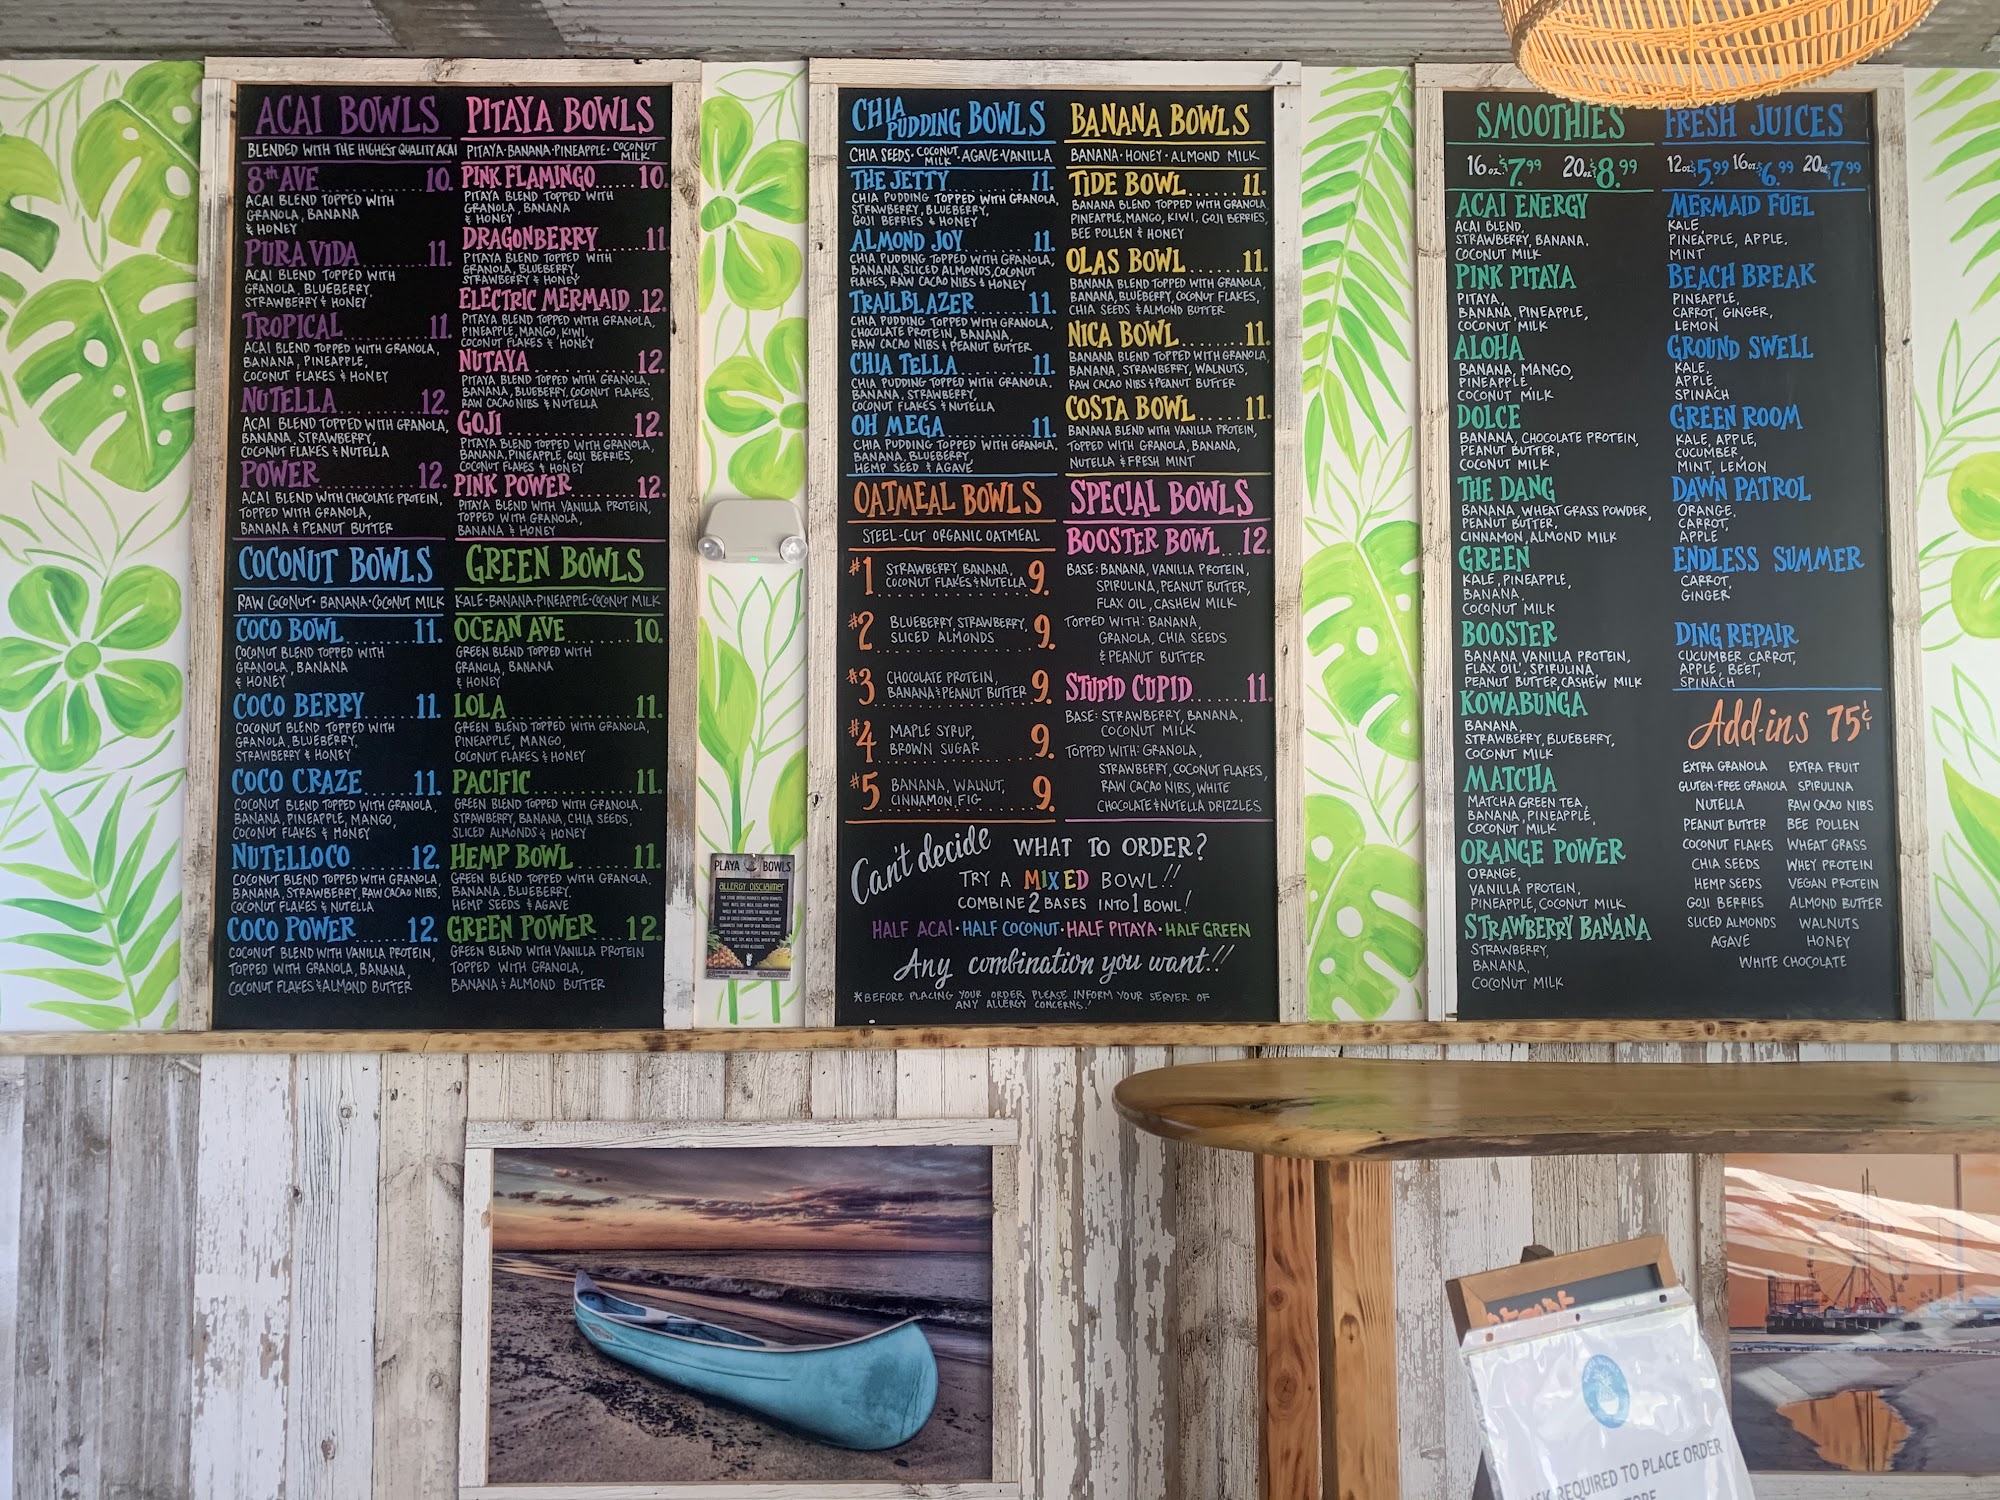 ACAI BOWLS
BLENDED WITH THE HIGHEST QUALITY ACAI
8th AVE 10.
ACAI BLEND TOPPED WITH
GRANOLA, BANANA
& HONEY
PURA VIDA 11.
ACAI BLEND TOPPED WITH
GRANOLA, BLUEBERRY,
STRAWBERRY & HONEY
TROPICAL 11.
ACAI BLEND TOPPED WITH GRANOLA,
BANANA, PINEAPPLE,
COCONUT FLAKES & HONEY
NUTELLA 12.
ACAI BLEND TOPPED WITH GRANOLA,
BANANA, STRAWBERRY,
COCONUT FLAKES & NUTELLA
POWER 12.
ACAI BLEND WITH CHOCOLATE PROTEIN,
TOPPED WITH GRANOLA,
BANANA & PEANUT BUTTER
PITAYA BOWLS
PITAYA · BANANA · PINEAPPLE · COCONUT MILK
PINK FLAMINGO 10.
PITAYA BLEND TOPPED WITH
GRANOLA, BANANA
& HONEY
DRAGONBERRY 11.
PITAYA BLEND TOPPED WITH
GRANOLA, BLUEBERRY
STRAWBERRY & HONEY
ELECTRIC MERMAID 12.
PITAYA BLEND TOPPED WITH GRANOLA,
PINEAPPLE, MANGO, KIWI,
COCONUT FLAKES & HONEY
NUTAYA 12.
PITAYA BLEND TOPPED WITH GRANOLA,
BANANA, BLUEBERRY, COCONUT FLAKES,
RAW CACAO NIBS & NUTELLA
GOJI 12.
PITAYA BLEND TOPPED WITH GRANOLA,
BANANA, PINEAPPLE, GOJI BERRIES,
COCONUT FLAKES & HONEY
PINK POWER 12.
PITAYA BLEND WITH VANILLA PROTEIN,
TOPPED WITH GRANOLA,
BANANA & HONEY
COCONUT BOWLS
RAW COCONUT · BANANA · COCONUT MILK
COCO BOWL 11.
COCONUT BLEND TOPPED WITH
GRANOLA, BANANA
& HONEY
COCO BERRY 11.
COCONUT BLEND TOPPED WITH
GRANOLA, BLUEBERRY,
STRAWBERRY & HONEY
COCO CRAZE 11.
COCONUT BLEND TOPPED WITH GRANOLA,
BANANA, PINEAPPLE, MANGO,
COCONUT FLAKES & HONEY
NUTELLOCO 12.
COCONUT BLEND TOPPED WITH GRANOLA,
BANANA, STRAWBERRY, RAW CACAO NIBS,
COCONUT FLAKES & NUTELLA
COCO POWER 12.
COCONUT BLEND WITH VANILLA PROTEIN,
TOPPED WITH GRANOLA, BANANA,
COCONUT FLAKES & ALMOND BUTTER
GREEN BOWLS
KALE · BANANA · PINEAPPLE · COCONUT MILK
OCEAN AVE 10.
GREEN BLEND TOPPED WITH
GRANOLA, BANANA
& HONEY
LOLA 11.
GREEN BLEND TOPPED WITH GRANOLA,
PINEAPPLE, MANGO,
COCONUT FLAKES & HONEY
PACIFIC 11.
GREEN BLEND TOPPED WITH GRANOLA,
STRAWBERRY, BANANA, CHIA SEEDS,
SLICED ALMONDS & HONEY
HEMP BOWL 11.
GREEN BLEND TOPPED WITH GRANOLA,
BANANA, BLUEBERRY,
HEMP SEEDS & AGAVE
GREEN POWER 12.
GREEN BLEND WITH VANILLA PROTEIN
TOPPED WITH GRANOLA,
BANANA & ALMOND BUTTER
PLAYA BOWLS
ALLERGY DISCLAIMER
CHIA PUDDING BOWLS
CHIA SEEDS · COCONUT MILK · AGAVE · VANILLA
THE JETTY 11.
CHIA PUDDING TOPPED WITH GRANOLA,
STRAWBERRY, BLUEBERRY,
GOJI BERRIES & HONEY
ALMOND JOY 11.
CHIA PUDDING TOPPED WITH GRANOLA,
BANANA, SLICED ALMONDS, COCONUT
FLAKES, RAW CACAO NIBS & HONEY
TRAILBLAZER 11.
CHIA PUDDING TOPPED WITH GRANOLA,
CHOCOLATE PROTEIN, BANANA,
RAW CACAO NIBS & PEANUT BUTTER
CHIA TELLA 11.
CHIA PUDDING TOPPED WITH GRANOLA,
BANANA, STRAWBERRY,
COCONUT FLAKES & NUTELLA
OH MEGA 11.
CHIA PUDDING TOPPED WITH GRANOLA,
BANANA, BLUEBERRY,
HEMP SEED & AGAVE
BANANA BOWLS
BANANA · HONEY · ALMOND MILK
TIDE BOWL 11.
BANANA BLEND TOPPED WITH GRANOLA,
PINEAPPLE, MANGO, KIWI, GOJI BERRIES,
BEE POLLEN & HONEY
OLAS BOWL 11.
BANANA BLEND TOPPED WITH GRANOLA,
BANANA, BLUEBERRY, COCONUT FLAKES,
CHIA SEEDS & ALMOND BUTTER
NICA BOWL 11.
BANANA BLEND TOPPED WITH GRANOLA,
BANANA, STRAWBERRY, WALNUTS,
RAW CACAO NIBS & PEANUT BUTTER
COSTA BOWL 11.
BANANA BLEND WITH VANILLA PROTEIN,
TOPPED WITH GRANOLA, BANANA,
NUTELLA & FRESH MINT
OATMEAL BOWLS
STEEL-CUT ORGANIC OATMEAL
#1 STRAWBERRY, BANANA,
COCONUT FLAKES & NUTELLA 9.
#2 BLUEBERRY, STRAWBERRY,
SLICED ALMONDS 9.
#3 CHOCOLATE PROTEIN,
BANANA & PEANUT BUTTER 9.
#4 MAPLE SYRUP,
BROWN SUGAR 9.
#5 BANANA, WALNUT,
CINNAMON, FIG 9.
SPECIAL BOWLS
BOOSTER BOWL 12.
BASE: BANANA, VANILLA PROTEIN,
SPIRULINA, PEANUT BUTTER,
FLAX OIL, CASHEW MILK
TOPPED WITH: BANANA,
GRANOLA, CHIA SEEDS
& PEANUT BUTTER
STUPID CUPID 11.
BASE: STRAWBERRY, BANANA,
COCONUT MILK
TOPPED WITH: GRANOLA,
STRAWBERRY, COCONUT FLAKES,
RAW CACAO NIBS, WHITE
CHOCOLATE & NUTELLA DRIZZLES
Can't decide WHAT TO ORDER?
TRY A MIXED BOWL!!
COMBINE 2 BASES INTO 1 BOWL!
HALF ACAI · HALF COCONUT · HALF PITAYA · HALF GREEN
Any combination you want!!
*BEFORE PLACING YOUR ORDER PLEASE INFORM YOUR SERVER OF
ANY ALLERGY CONCERNS!
SMOOTHIES
16 oz. $7.99 20 oz. $8.99
ACAI ENERGY
ACAI BLEND,
STRAWBERRY, BANANA,
COCONUT MILK
PINK PITAYA
PITAYA,
BANANA, PINEAPPLE,
COCONUT MILK
ALOHA
BANANA, MANGO,
PINEAPPLE,
COCONUT MILK
DOLCE
BANANA, CHOCOLATE PROTEIN,
PEANUT BUTTER,
COCONUT MILK
THE DANG
BANANA, WHEAT GRASS POWDER,
PEANUT BUTTER,
CINNAMON, ALMOND MILK
GREEN
KALE, PINEAPPLE,
BANANA,
COCONUT MILK
BOOSTER
BANANA VANILLA PROTEIN,
FLAX OIL, SPIRULINA,
PEANUT BUTTER, CASHEW MILK
KOWABUNGA
BANANA,
STRAWBERRY, BLUEBERRY,
COCONUT MILK
MATCHA
MATCHA GREEN TEA,
BANANA, PINEAPPLE,
COCONUT MILK
ORANGE POWER
ORANGE,
VANILLA PROTEIN,
PINEAPPLE, COCONUT MILK
STRAWBERRY BANANA
STRAWBERRY,
BANANA,
COCONUT MILK
FRESH JUICES
12 oz. $5.99 16 oz. $6.99 20 oz. $7.99
MERMAID FUEL
KALE,
PINEAPPLE, APPLE,
MINT
BEACH BREAK
PINEAPPLE,
CARROT, GINGER,
LEMON
GROUND SWELL
KALE,
APPLE,
SPINACH
GREEN ROOM
KALE, APPLE,
CUCUMBER,
MINT, LEMON
DAWN PATROL
ORANGE,
CARROT,
APPLE
ENDLESS SUMMER
CARROT,
GINGER
DING REPAIR
CUCUMBER CARROT,
APPLE, BEET,
SPINACH
Add-ins 75¢
EXTRA GRANOLA EXTRA FRUIT
GLUTEN-FREE GRANOLA SPIRULINA
NUTELLA RAW CACAO NIBS
PEANUT BUTTER BEE POLLEN
COCONUT FLAKES WHEAT GRASS
CHIA SEEDS WHEY PROTEIN
HEMP SEEDS VEGAN PROTEIN
GOJI BERRIES ALMOND BUTTER
SLICED ALMONDS WALNUTS
AGAVE HONEY
WHITE CHOCOLATE
REQUIRED TO PLACE ORDER